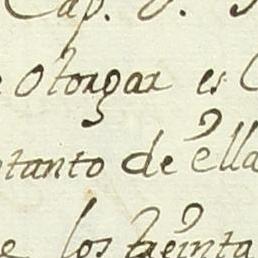 Cap.
Otorgar es
tanto de ella
los treinta